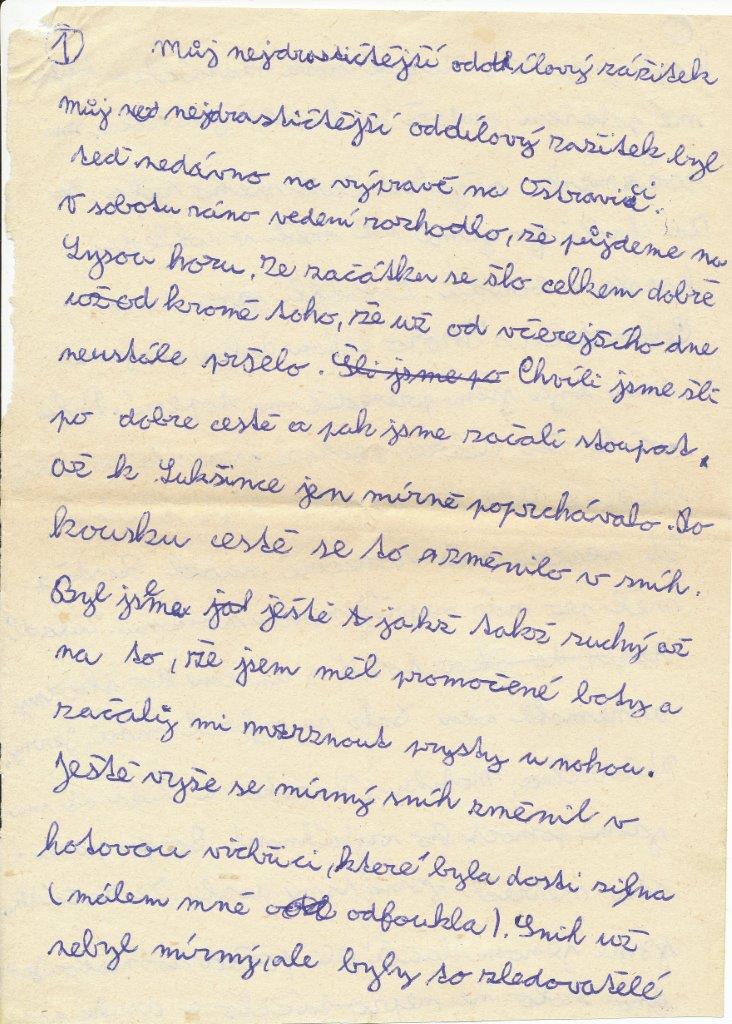 1 Můj nejdrastičtější oddílový zážitek
Můj nejdrastičtější oddílový zažitek byl
teď nedávno na výpravě na Ostravici.
V sobotu ráno vedení rozhodlo, že půjdeme na
Lysou horu. Ze začátku se šlo celkem dobře
už od kromě toho, že už od včerejšího dne
neustále pršelo. Šli jsme po Chvíli jsme šli
po dobre cestě a pak jsme začali stoupat.
Až k Lukšince jen mírně poprchávalo. Po
kousku cestě se to změnilo v sníh.
Byl jsem ještě jakž takž suchý až
na to, že jsem měl promočené boty a
začaly mi mrznout prysty u nohou.
Ještě vyše se mírný sníh změnil v
hotovou vichřici, která byla dosti silna
(málem mně odfoukla). Sníh už
nebyl mírný, ale byly to zledovatělé